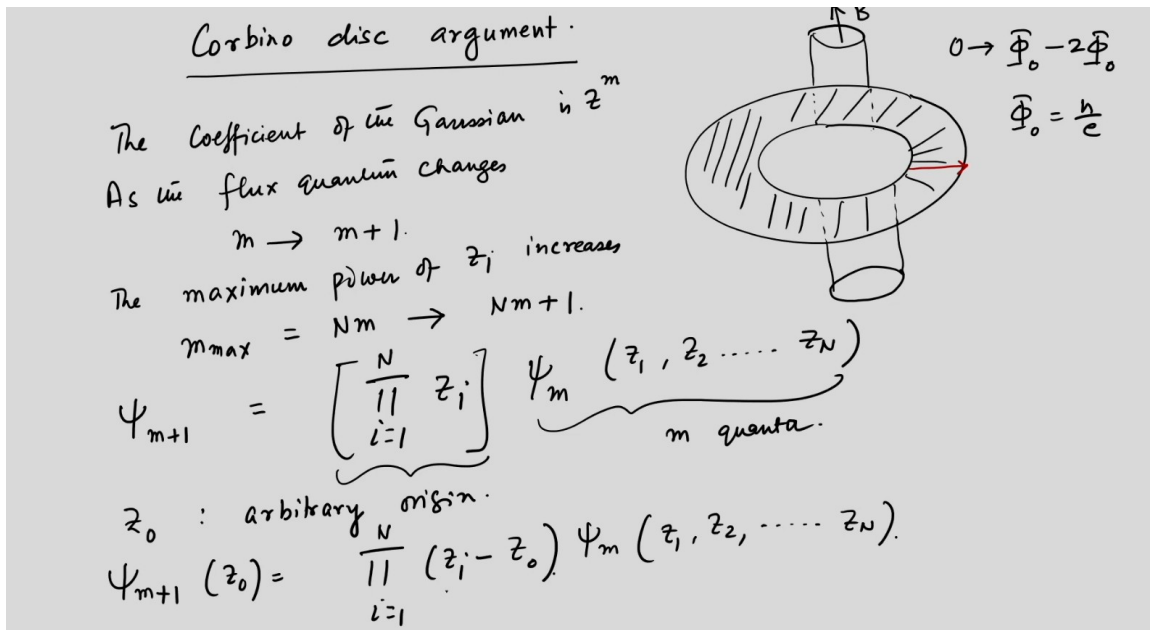 Corbino disc argument.
B
0 → Φ₀ - 2Φ₀
Φ₀ = h/e
The coefficient of the Gaussian is z^m
As the flux quantum changes
m → m+1.
The maximum power of z_i increases
m_max = Nm → Nm+1.
ψ_{m+1} = [∏_{i=1}^{N} z_i] ψ_m (z_1, z_2 ..... z_N)
m quanta.
z_0 : arbitrary origin.
ψ_{m+1} (z_0) = ∏_{i=1}^{N} (z_i - z_0) ψ_m (z_1, z_2, ..... z_N).